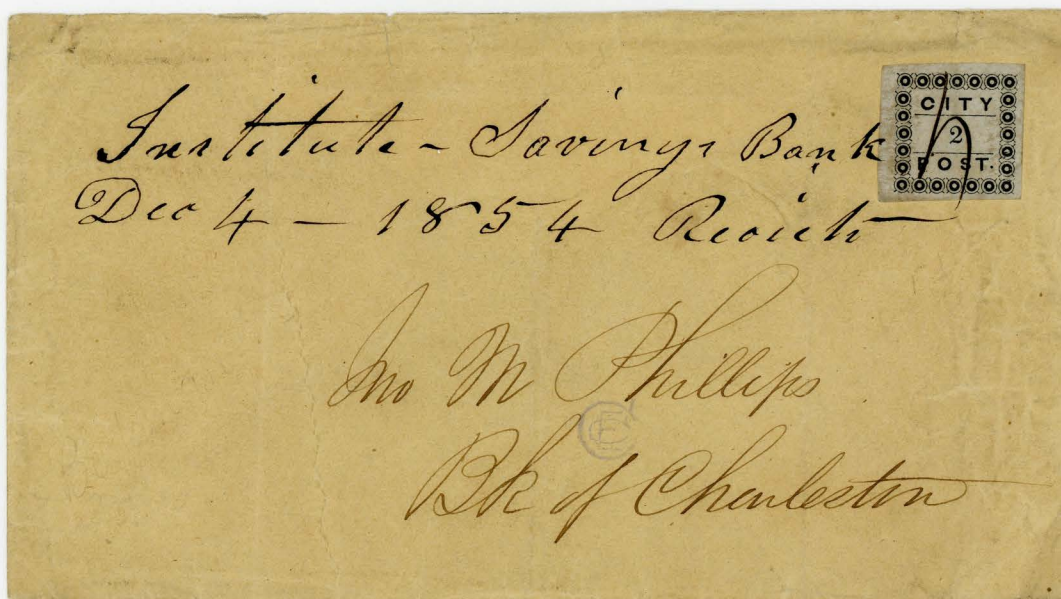 Institute - Savings Bank
Dec 4 - 1854
CITY
2
POST.
Jno M Phillips
Bk of Charleston